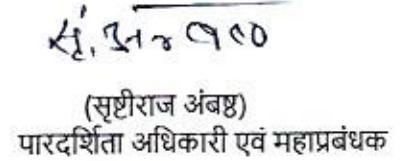 (सृष्टीराज अंबष्ठ)
पारदर्शिता अधिकारी एवं महाप्रबंधक